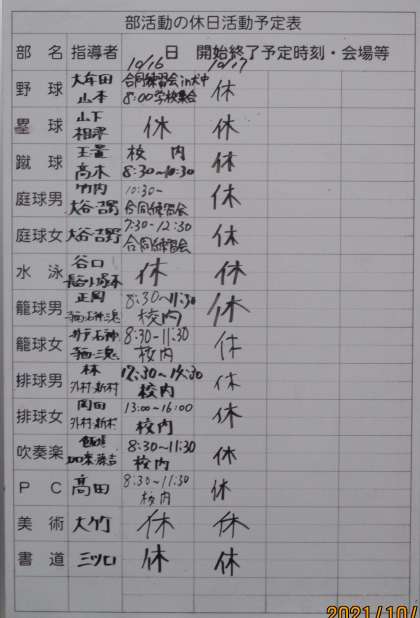 部活動の休日活動予定表
部 名 指導者 10/16 日 10/17 開始終了予定時刻・会場等
野 球 大牟田 山本 合同練習会in大中 8:00学校集合 休
塁 球 山下 相澤 休 休
蹴 球 高木 校 内 8:30~10:30 休
庭球男 竹内 大谷・吉野 10:30~ 合同練習会 休
庭球女 大谷・吉野 7:30-12:30 合同練習会 休
水 泳 谷口 休 休
籠球男 正岡 8:30~11:30 校内 休
籠球女 8:30-11:30 校内 休
排球男 林 外村・新村 12:30~14:30 校内 休
排球女 岡田 外村・新村 13:00~16:00 校内 休
吹奏楽 8:30~11:30 校内 休
PC 髙田 8:30-11:30 校内 休
美 術 大竹 休 休
書 道 三ツ口 休 休
2021/10/